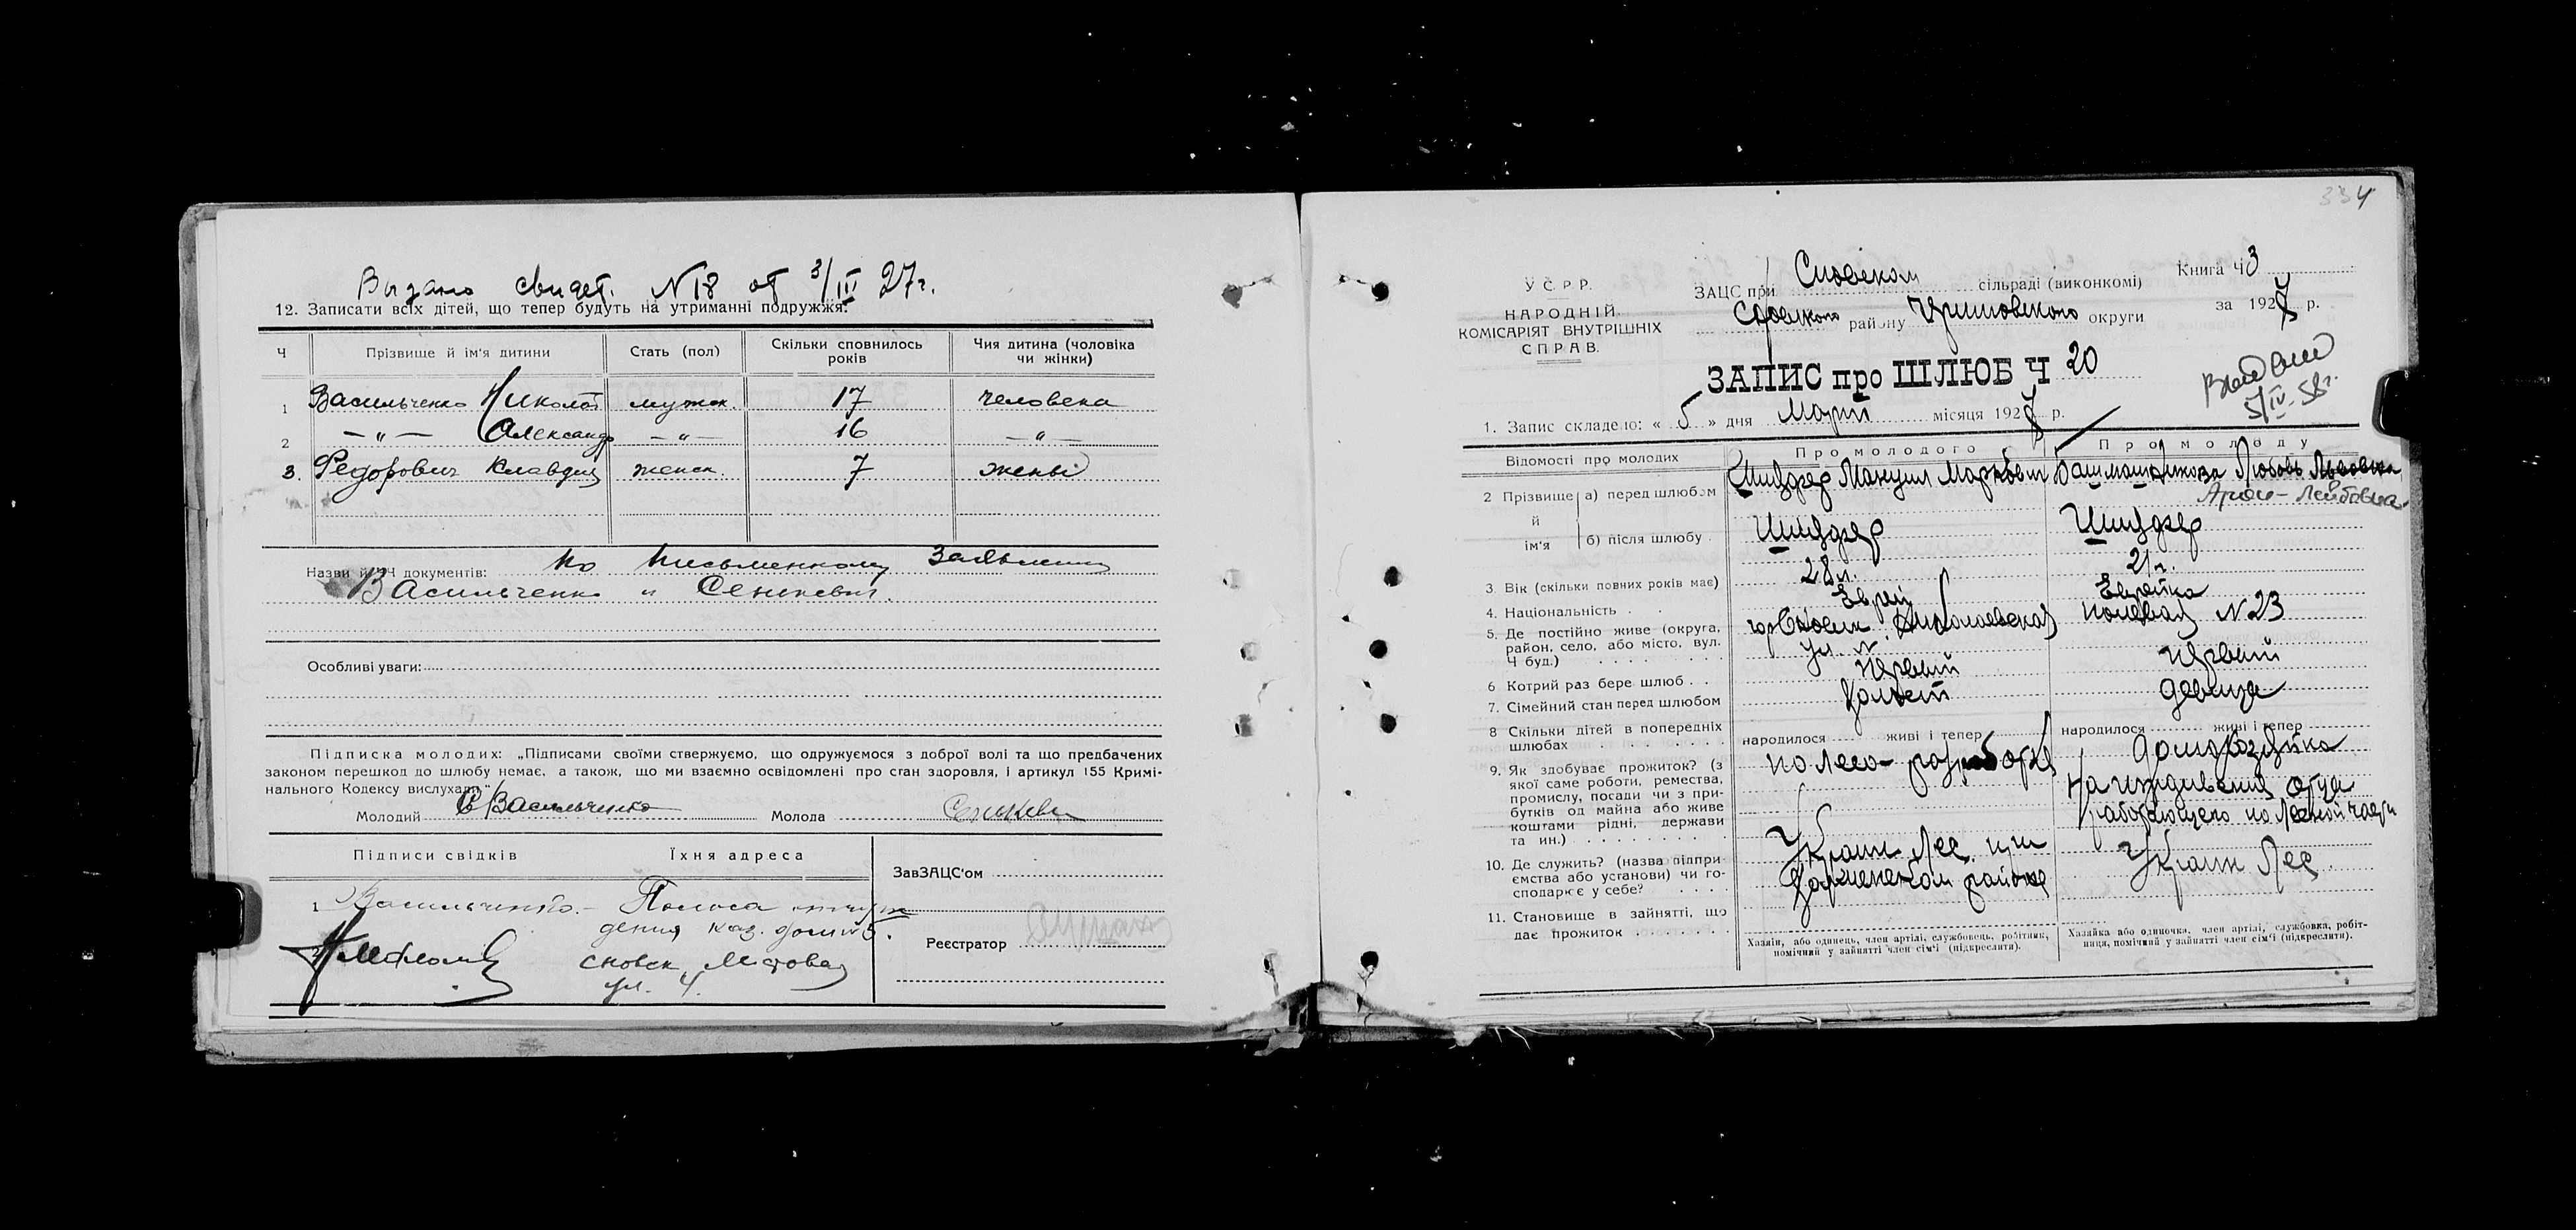 Выдано свидет. N18 от 3/III 27г.
12. Записати всіх дітей, що тепер будуть на утриманні подружжя:
Ч Прізвище й ім'я дитини Стать (пол) Скільки сповнилось років Чия дитина (чоловіка чи жінки)
1 Васильченко Николай мужск. 17 человека
2 —"— Александр —"— 16 —"—
3. Федорович Клавдия женск. 7 жены
Назви й ЧЧ документів: по письменному заявлению
Васильченко и Сенкевич.
Особливі уваги:
Підписка молодих: „Підписами своїми ствержуємо, що одружуємося з доброї волі та що предбачених
законом перешкод до шлюбу немає, а також, що ми взаємно освідомлені про стан здоровля, і артикул 155 Кримі-
нального Кодексу вислухали"
Молодий Васильченко Молода Сенкевич
Підписи свідків Їхня адреса
ЗавЗАЦС'ом
1 Васильченко. – Полоса отчуж
дения каз. дом №5.
Реєстратор
2
Сновск, Мостовая
ул. 4.
334
У С Р Р.
НАРОДНІЙ
КОМІСАРІЯТ ВНУТРІШНІХ
СПРАВ.
ЗАЦС при Сновском сільраді (виконкомі)
Книга Ч 3
Сновского району округи
за 1927 р.
ЗАПИС про ШЛЮБ Ч 20
Выдано
5/IV-58г.
1. Запис складено: « 5 » дня Март місяця 1927 р.
Відомості про молодих Про молодого Про молоду
2 Прізвище й ім'я а) перед шлюбом Шндер Мануил Маркович Башмашникова Любовь Львовна
Арон-Лейбовна
б) після шлюбу Шндер Шндер
3. Вік (скільки повних років має) 28 л. 21 г.
4. Національність Еврей Еврейка
5. Де постійно живе (округа, район, село, або місто, вул. Ч буд.) гор Сновск Николаевская ул. N Полевая N 23
6 Котрий раз бере шлюб первый первый
7. Сімейний стан перед шлюбом холост девица
8 Скільки дітей в попередніх шлюбах народилося живі і тепер народилося живі і тепер
9. Як здобуває прожиток? (з якої саме роботи, ремества, промислу, посади чи з прибутків од майна або живе коштами рідні, держави та ин.) по лесо-разработке домохозяйка
на иждивении отца
работающего по лесной части
10. Де служить? (назва підприємства або установи) чи господарює у себе? Украин Лес при районе Украин Лес
11. Становище в зайнятті, що дає прожиток
Хазяін, або одинець, член артілі, службовець, робітник, помічний у зайнятті член сім'ї (підкреслити).
Хазяйка або одиночка, член артілі, службовка, робітниця, помічний у зайнятті член сім'ї (підкреслити).